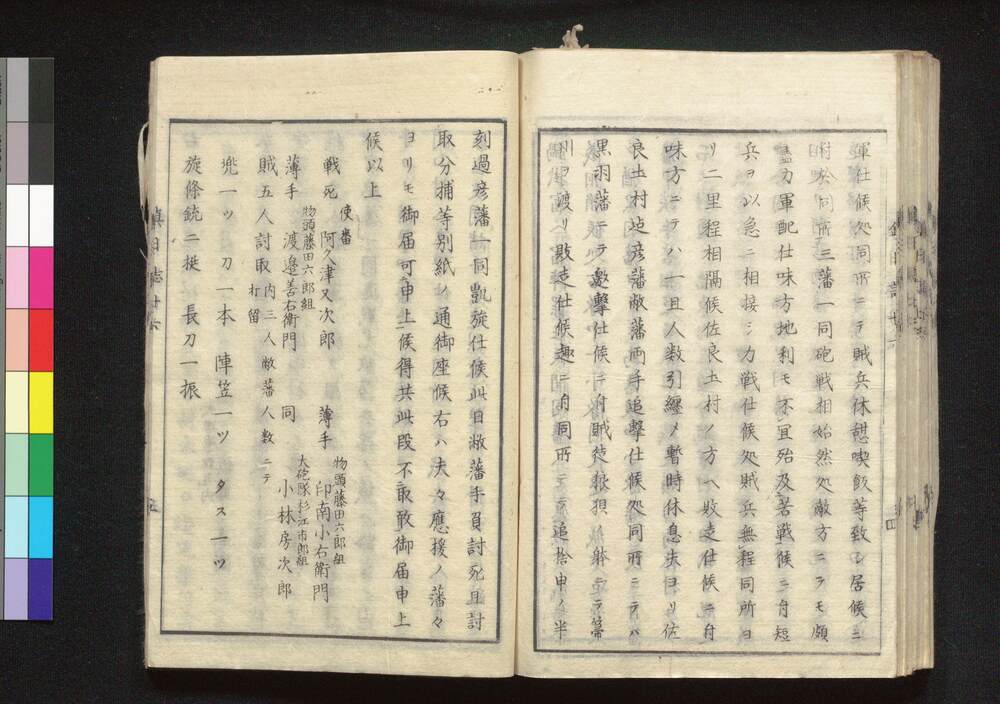 渾仕候処同所ニテ賊兵休憩喫飯等致シ居候ニ
付於同所三藩一同砲戦相始然処敵方ニテモ頗
盡力軍配仕味方地利モ不宜殆及苦戦候ニ付短
兵ヲ以急ニ相接シ力戦仕候処賊兵無程同所ヨ
リ二里程相隔候佐良土村ノ方ヘ敗走仕候ニ付
味方ニテハ一旦人数引纏メ暫時休息夫ヨリ佐
良土村迠彦藩敝藩両手追撃仕候処同所ニテハ
黒羽藩ニテ邀撃仕候ニ付賊徒狼狽
川ヲ渡リ敗走仕候趣ニ付同所ニテ追捨申ノ半
刻過彦藩一同凱旋仕候此日敝藩手負討死且討
取分捕等別紙ノ通御座候右ハ夫々應援ノ藩々
ヨリモ御届可申上候得共此段不取敢御届申上
候以上
使番
戦死 阿久津又次郎
物頭藤田六郎組
薄手 印南小右衛門
物頭藤田六郎組
薄手 渡邉善右衛門
大砲隊杉江市郎組
同 小林房次郎
賊五人討取 内三人敝藩人数ニテ打留
兜一ツ 刀一本 陣笠一ツ タス一ツ
旋條銃二挺 長刀一振